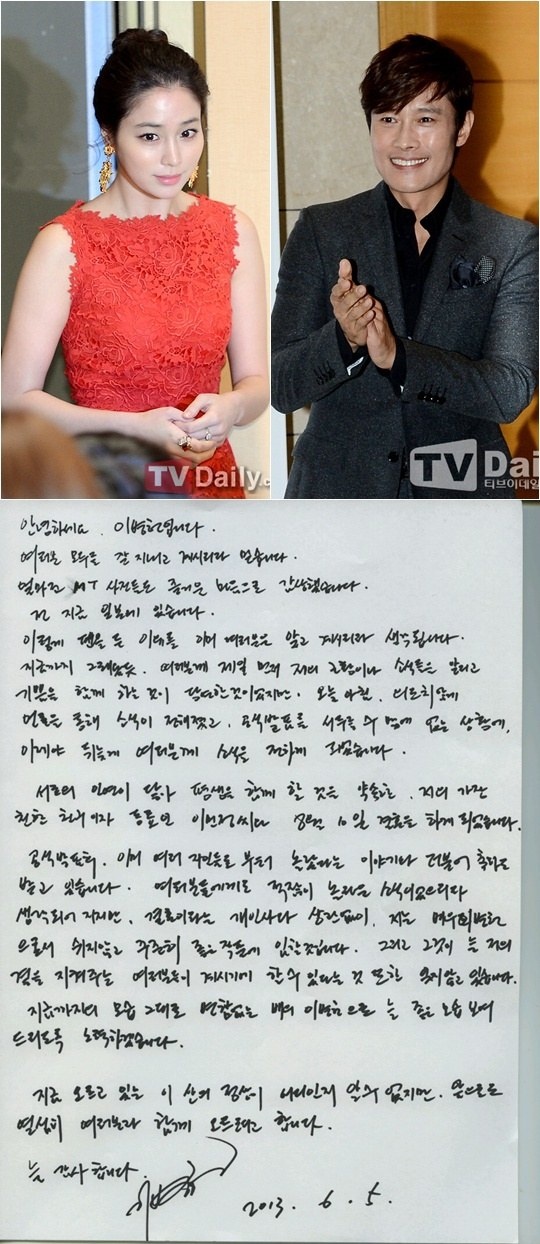 TV Daily.
TV Dai
티브이데일
안녕하세요. 이병헌입니다.
여러분 모두들 잘 지내고 계시리라 믿습니다.
얼마전 MT 사진들도 즐거운 마음으로 감상했습니다.
전 지금 일본에 있습니다.
이렇게 펜을 든 이유를 이미 여러분은 알고 계시리라 생각됩니다.
지금까지 그래왔듯, 여러분께 제일 먼저 저의 근황이나 소식들을 알리고
기쁨을 함께 하는 것이 당연한것이었지만, 오늘 아침, 의도치않게
언론을 통해 소식이 전해졌고, 공식발표를 서두를 수 밖에 없는 상황에,
이제야 뒤늦게 여러분께 소식을 전하게 되었습니다.
서로의 인연이 닿아 평생을 함께 할 것을 약속한, 저의 가장
친한 친구이자 동료인 이민정씨와 8월 10일 결혼을 하게 되었습니다.
공식발표후, 이미 여러 지인들로 부터 놀랐다는 이야기와 더불어 축하를
받고 있습니다. 여러분들에게도 적잖이 놀라운 소식이었으리라
생각되어 지지만, 결혼이라는 개인사와 상관없이, 저는 배우이병헌
으로서 쉬지않고 꾸준히 좋은 작품에 임할것입니다. 그리고 그것이 늘 저의
곁을 지켜주는 여러분들이 계시기에 할 수 있다는 것 또한 잊지않고 있습니다.
지금까지의 모습 그대로 변함없는 배우 이병헌으로 늘 좋은 모습 보여
드리도록 노력하겠습니다.
지금 오르고 있는 이 산의 정상이 어디인지 알수 없지만, 앞으로도
열심히 여러분과 함께 오르려고 합니다.
늘 감사합니다.
2013. 6. 5.